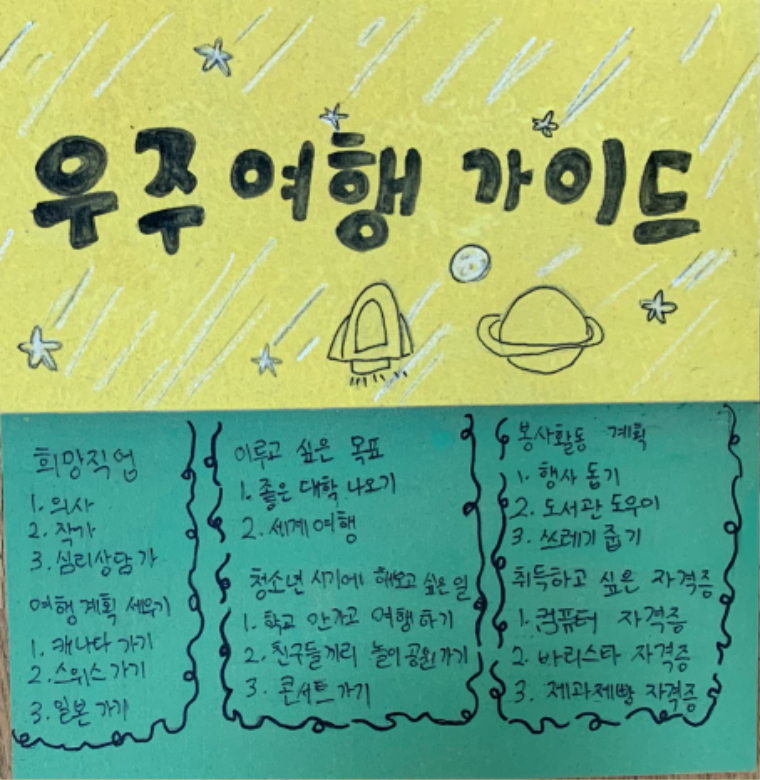 우주 여행 가이드
희망직업
1. 의사
2. 작가
3. 심리상담가
여행 계획 세우기
1. 캐나다 가기
2. 스위스 가기
3. 일본 가기
이루고 싶은 목표
1. 좋은 대학 나오기
2. 세계여행
청소년 시기에 해보고 싶은 일
1. 학교 안가고 여행하기
2. 친구들끼리 놀이공원가기
3. 콘서트 가기
봉사활동 계획
1. 행사 돕기
2. 도서관 도우미
3. 쓰레기 줍기
취득하고 싶은 자격증
1. 컴퓨터 자격증
2. 바리스타 자격증
3. 제과제빵 자격증